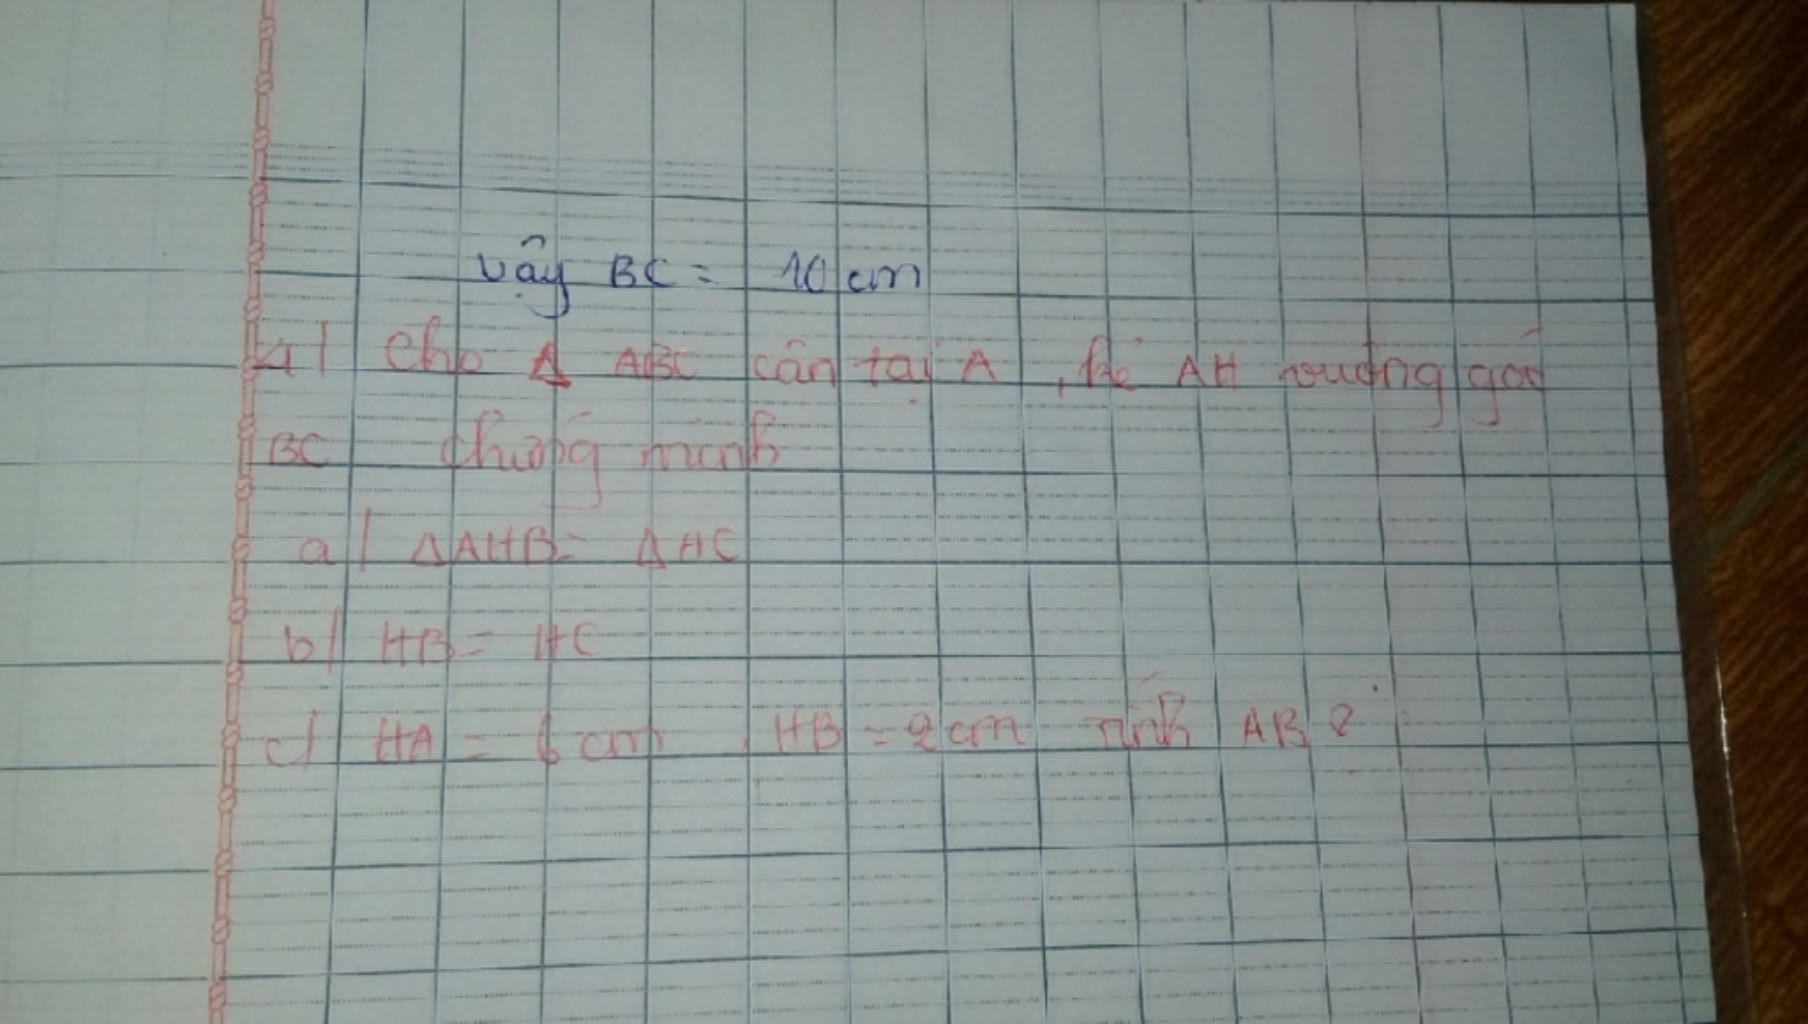 Vậy BC = 10 cm
4/ Cho Δ ABC cân tại A, kẻ AH vuông góc
BC chứng minh
a/ ΔAHB = ΔHC
b/ HB = HC
c/ HA = 6 cm, HB = 2 cm tính AB ?